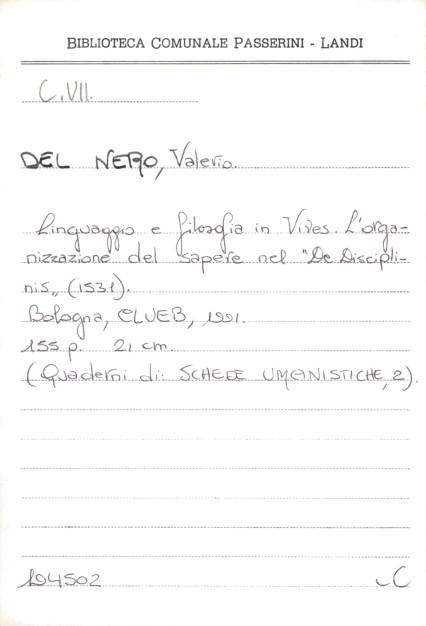 BIBLIOTECA COMUNALE PASSERINI - LANDI
C.VII.
DEL NERO, Valerio.
Linguaggio e filosofia in Vives. L'orga-
nizzazione del sapere nel "De Discipli-
nis„ (1531).
Bologna, CLUEB, 1991.
155 p. 21 cm.
(Quaderni di: SCHEDE UMANISTICHE, 2).
194502
C